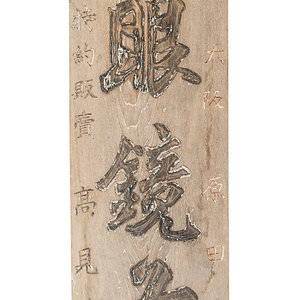 大阪 原田
眼鏡
特約販賣 高見